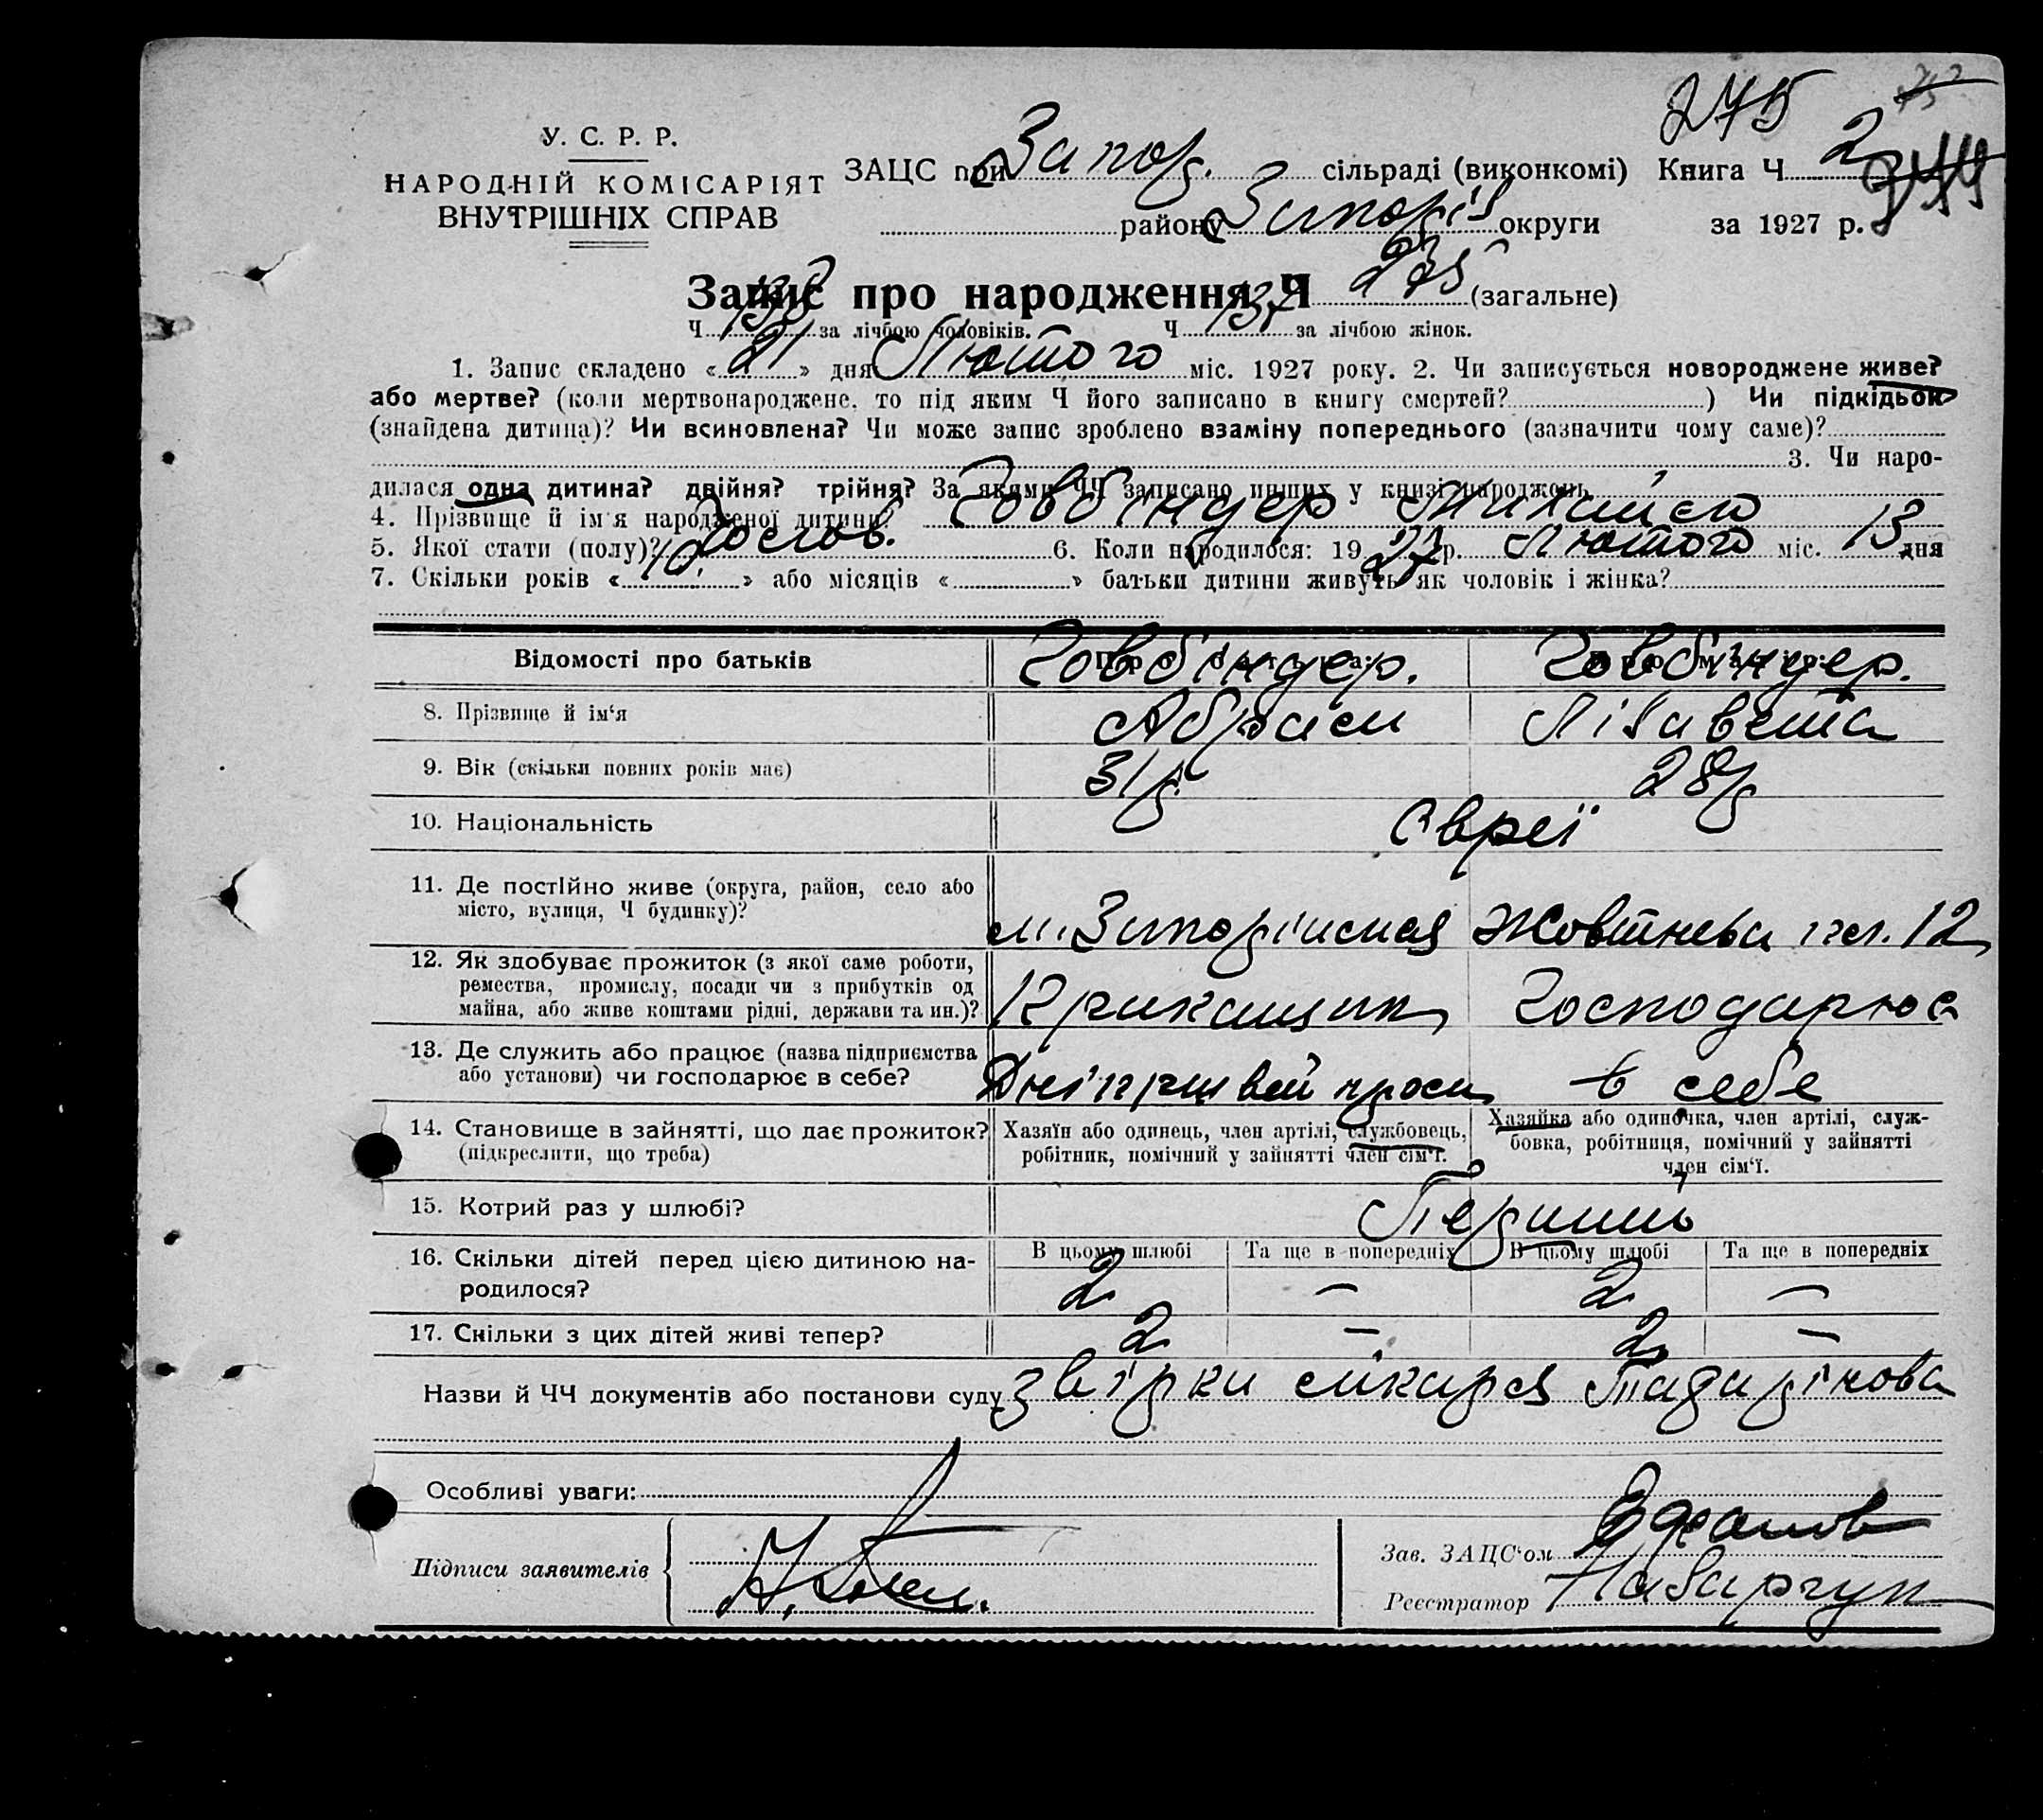 275
У. С. Р. Р.
НАРОДНІЙ КОМІСАРІЯТ
ВНУТРІШНІХ СПРАВ
ЗАЦС при Запор. сільраді (виконкомі) Книга Ч. 2
району Запоріз округи за 1927 р.
Запис про народження Ч 275 (загальне)
Ч 138 за лічбою чоловіків. Ч 137 за лічбою жінок.
1. Запис складено « 21 » дня Лютого міс. 1927 року. 2. Чи записується новороджене живе?
або мертве? (коли мертвонароджене, то під яким Ч його записано в книгу смертей? ) Чи підкідьок
(знайдена дитина)? Чи всиновлена? Чи може запис зроблено взаміну попереднього (зазначити чому саме)?
3. Чи наро-
дилася одна дитина? двійня? трійня? За якими ЧЧ записано инших у книзі народжень
4. Прізвище й ім'я народженої дитини? Говбіндер Михайло
5. Якої стати (полу)? чолов. 6. Коли народилося: 19 27 р. Лютого міс. 13 дня
7. Скільки років « 10 » або місяців « » батьки дитини живуть як чоловік і жінка?
Відомості про батьків Говбіндер. Говбіндер.
8. Прізвище й ім'я Абрам Лізавета
9. Вік (скільки повних років має) 31 р. 28 р
10. Національність Євреї
11. Де постійно живе (округа, район, село або
місто, вулиця, Ч будинку)? м. Запоріжжя Жовтнева 12
12. Як здобуває прожиток (з якої саме роботи,
ремества, промислу, посади чи з прибутків од
майна, або живе коштами рідні, держави та ин.)? Прикащик Господарює
13. Де служить або працює (назва підприємства
або установи) чи господарює в себе? в себе
14. Становище в зайнятті, що дає прожиток?
(підкреслити, що треба)
Хазяїн або одинець, член артілі, службовець,
робітник, помічний у зайнятті член сім'ї.
Хазяйка або одиночка, член артілі, служ-
бовка, робітниця, помічний у зайнятті
член сім'ї.
15. Котрий раз у шлюбі? Перший
В цьому шлюбі Та ще в попередніх В цьому шлюбі Та ще в попередніх
16. Скільки дітей перед цією дитиною на-
родилося? 2 — 2 —
17. Скільки з цих дітей живі тепер? 2 — 2 —
Назви й ЧЧ документів або постанови суду
Особливі уваги:
Підписи заявителів
Зав. ЗАЦС'ом
Реєстратор